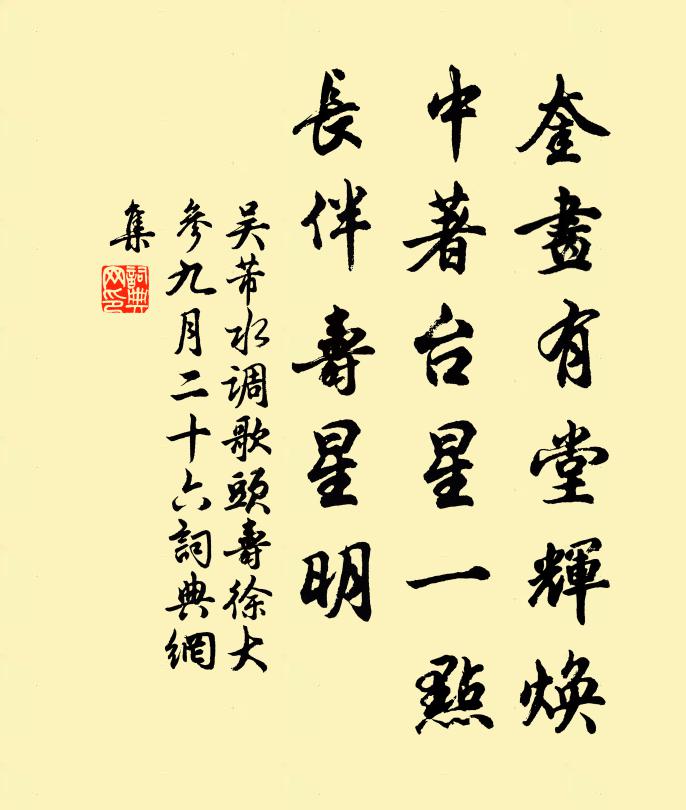 奎畫有堂輝煥
中著台星一點
長伴壽星明
吴芾水调歌頭壽徐大
參九月二十六詞典網
集
詞典
网印